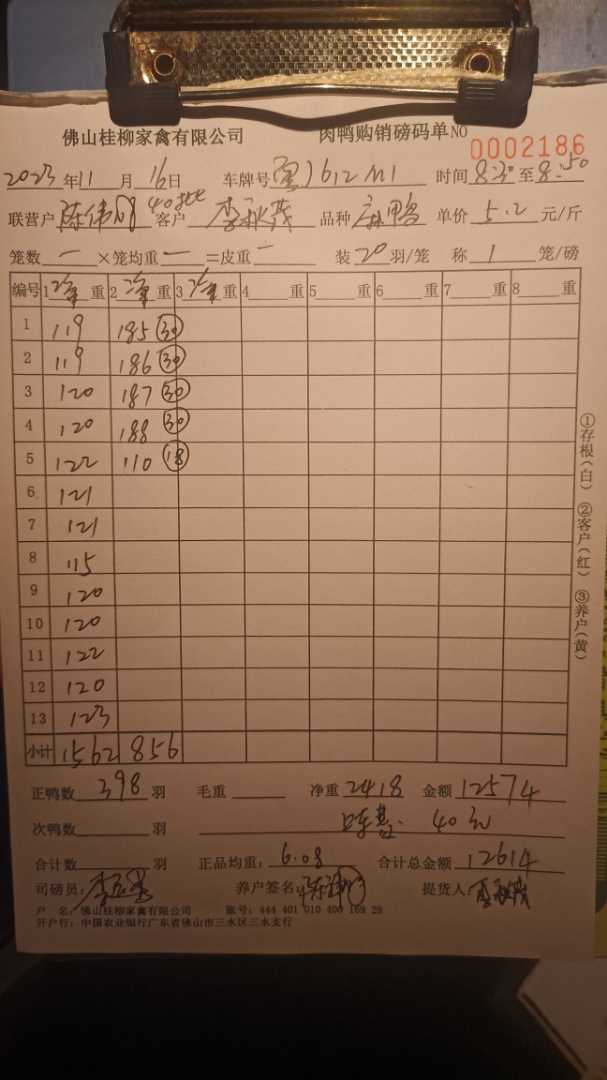 佛山桂柳家禽有限公司 肉鸭购销磅码单NO 0002186
2023年11月16日 车牌号 612M1 时间8:30至8:50
联营户 陈伟 客户 李永茂 品种 麻鸭 单价 5.2 元/斤
笼数 一 ×笼均重 一 =皮重 一 装 20 羽/笼 称 1 笼/磅
编号 1净重 2净重 3净重 4 重 5 重 6 重 7 重 8 重
1 119 185 30
2 119 186 30
3 120 187 30
4 120 188 30
5 122 110 18
6 121
7 121
8 115
9 120
10 120
11 122
12 120
13 123
小计 1562 856
正鸭数 398 羽 毛重 净重 2418 金额 12574
次鸭数 羽 40元
合计数 羽 正品均重: 6.08 合计总金额 12614
司磅员: 养户签名: 提货人 李永茂
户 名: 佛山桂柳家禽有限公司 账号: 444 401 010 400 169 29
开户行: 中国农业银行广东省佛山市三水区三水支行
①存根(白) ②客户(红) ③养户(黄)